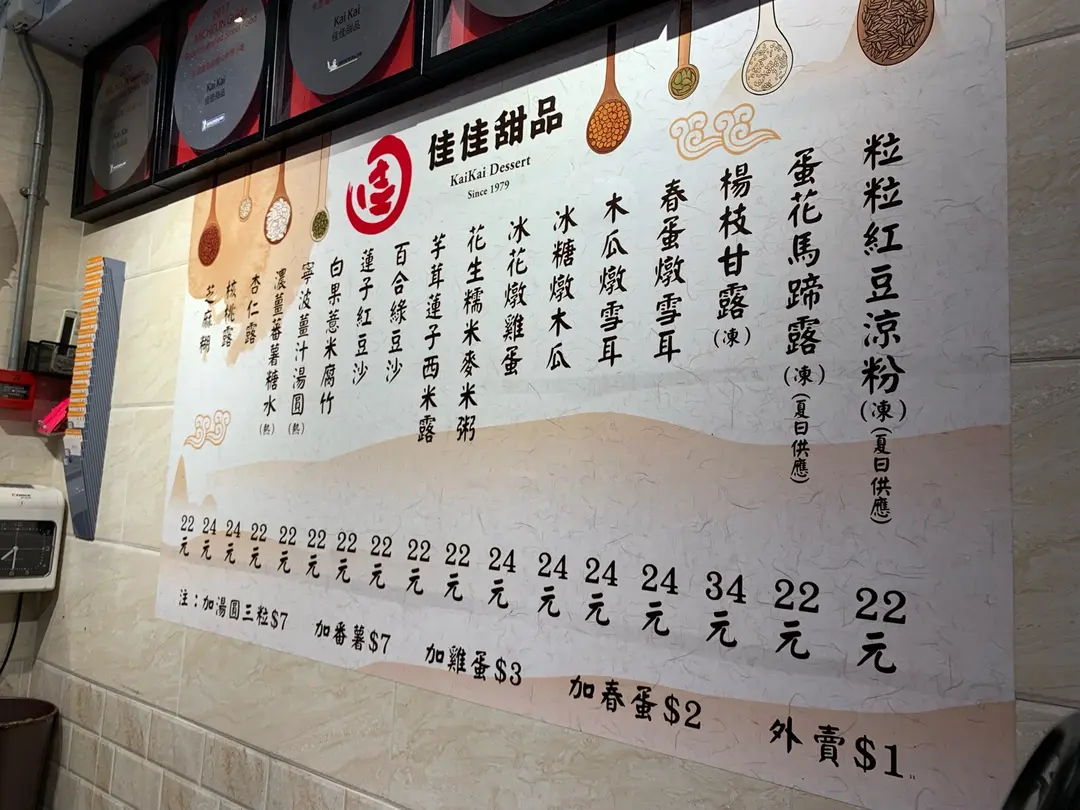 Kai Kai
佳佳甜品
Kai Kai
佳佳甜品
Kai Kai
佳佳甜品
KaiKai Dessert
Since 1979
粒粒紅豆涼粉(凍)(夏日供應)
蛋花馬蹄露(凍)(夏日供應)
楊枝甘露(凍)
春蛋燉雪耳
木瓜燉雪耳
冰糖燉木瓜
冰花燉雞蛋
花生糯米麥米粥
芋茸蓮子西米露
百合綠豆沙
蓮子紅豆沙
白果薏米腐竹
寧波薑汁湯圓(熱)
濃薑蕃薯糖水(熱)
杏仁露
核桃露
芝麻糊
22元
22元
34元
24元
24元
24元
24元
22元
22元
22元
22元
22元
22元
22元
24元
24元
22元
注：加湯圓三粒$7
加番薯$7
加雞蛋$3
加春蛋$2
外賣$1